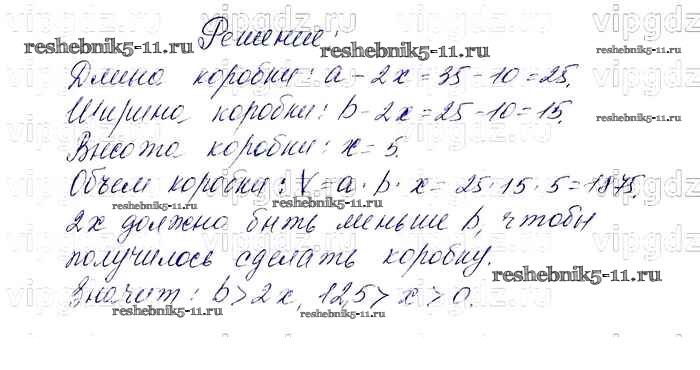 Решение:
Длина коробки: a - 2x = 35 - 10 = 25.
Ширина коробки: b - 2x = 25 - 10 = 15.
Высота коробки: x = 5.
Объем коробки: V = a · b · x = 25 · 15 · 5 = 1875.
2x должно быть меньше b, чтобы
получилось сделать коробку.
Значит: b > 2x, 12,5 > x > 0.
reshebnik5-11.ru
reshebnik5-11.ru
reshebnik5-11.ru
reshebnik5-11.ru
reshebnik5-11.ru
reshebnik5-11.ru
reshebnik5-11.ru
reshebnik5-11.ru